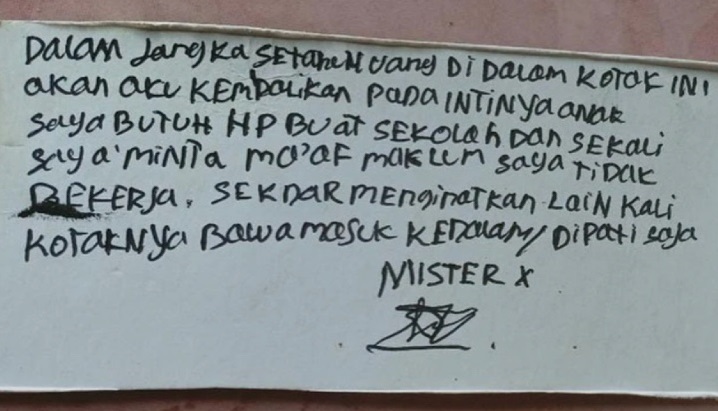 DALAM JANGKA SETAHUN UANG DI DALAM KOTAK INI
AKAN AKU KEMBALIKAN PADA INTINYA ANAK
SAYA BUTUH HP BUAT SEKOLAH DAN SEKALI
SAYA MINTA MA'AF MAKLUM SAYA TIDAK
BEKERJA. SEKDAR MENGINATKAN LAIN KALI
KOTAKNYA BAWA MASUK KEDALAM/
MISTER X